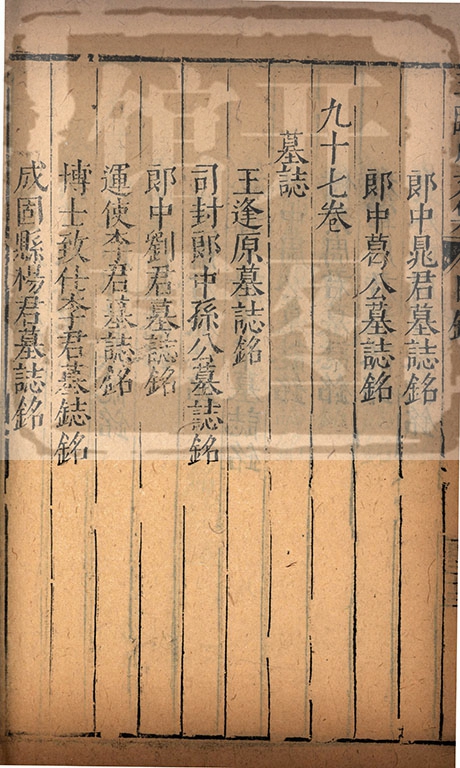 郎中晁君墓誌銘
郎中葛公墓誌銘
九十七卷
墓誌
王逢原墓誌銘
司封郎中孫公墓誌銘
郎中劉君墓誌銘
運使李君墓誌銘
博士致仕李君墓誌銘
成固縣楊君墓誌銘